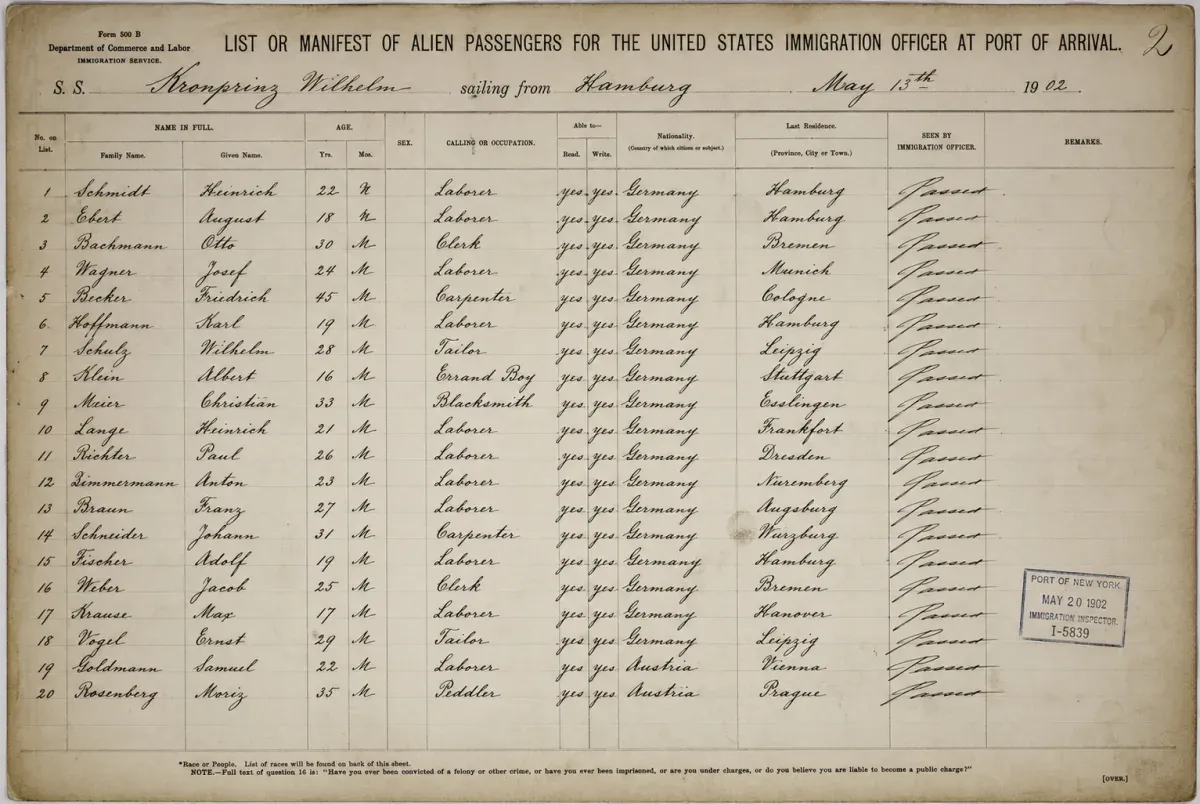 Form 500 B
Department of Commerce and Labor
IMMIGRATION SERVICE.
LIST OR MANIFEST OF ALIEN PASSENGERS FOR THE UNITED STATES IMMIGRATION OFFICER AT PORT OF ARRIVAL.
2
S. S. Kronprinz Wilhelm sailing from Hamburg May 13th 1902.
No. on List. NAME IN FULL. Family Name. Given Name. AGE. Yrs. Mos. SEX. CALLING OR OCCUPATION. Able to— Read. Write. Nationality. (Country of which citizen or subject.) Last Residence. (Province, City or Town.) SEEN BY IMMIGRATION OFFICER. REMARKS.
1 Schmidt Heinrich 22 N Laborer yes yes Germany Hamburg Passed
2 Ebert August 18 N Laborer yes yes Germany Hamburg Passed
3 Bachmann Otto 30 M Clerk yes yes Germany Bremen Passed
4 Wagner Josef 24 M Laborer yes yes Germany Munich Passed
5 Becker Friedrich 45 M Carpenter yes yes Germany Cologne Passed
6 Hoffmann Karl 19 M Laborer yes yes Germany Hamburg Passed
7 Schulz Wilhelm 28 M Tailor yes yes Germany Leipzig Passed
8 Klein Albert 16 M Errand Boy yes yes Germany Stuttgart Passed
9 Meier Christian 33 M Blacksmith yes yes Germany Esslingen Passed
10 Lange Heinrich 21 M Laborer yes yes Germany Frankfort Passed
11 Richter Paul 26 M Laborer yes yes Germany Dresden Passed
12 Zimmermann Anton 23 M Laborer yes yes Germany Nuremberg Passed
13 Braun Franz 27 M Laborer yes yes Germany Augsburg Passed
14 Schneider Johann 31 M Carpenter yes yes Germany Wurzburg Passed
15 Fischer Adolf 19 M Laborer yes yes Germany Hamburg Passed
16 Weber Jacob 25 M Clerk yes yes Germany Bremen Passed
17 Krause Max 17 M Laborer yes yes Germany Hanover Passed
18 Vogel Ernst 29 M Tailor yes yes Germany Leipzig Passed
19 Goldmann Samuel 22 M Laborer yes yes Austria Vienna Passed
20 Rosenberg Moriz 35 M Peddler yes yes Austria Prague Passed
PORT OF NEW YORK.
MAY 20 1902
IMMIGRATION INSPECTOR.
I-5839
*Race or People. List of races will be found on back of this sheet.
NOTE.—Full text of question 16 is: "Have you ever been convicted of a felony or other crime, or have you ever been imprisoned, or are you under charges, or do you believe you are liable to become a public charge?"
[OVER.]